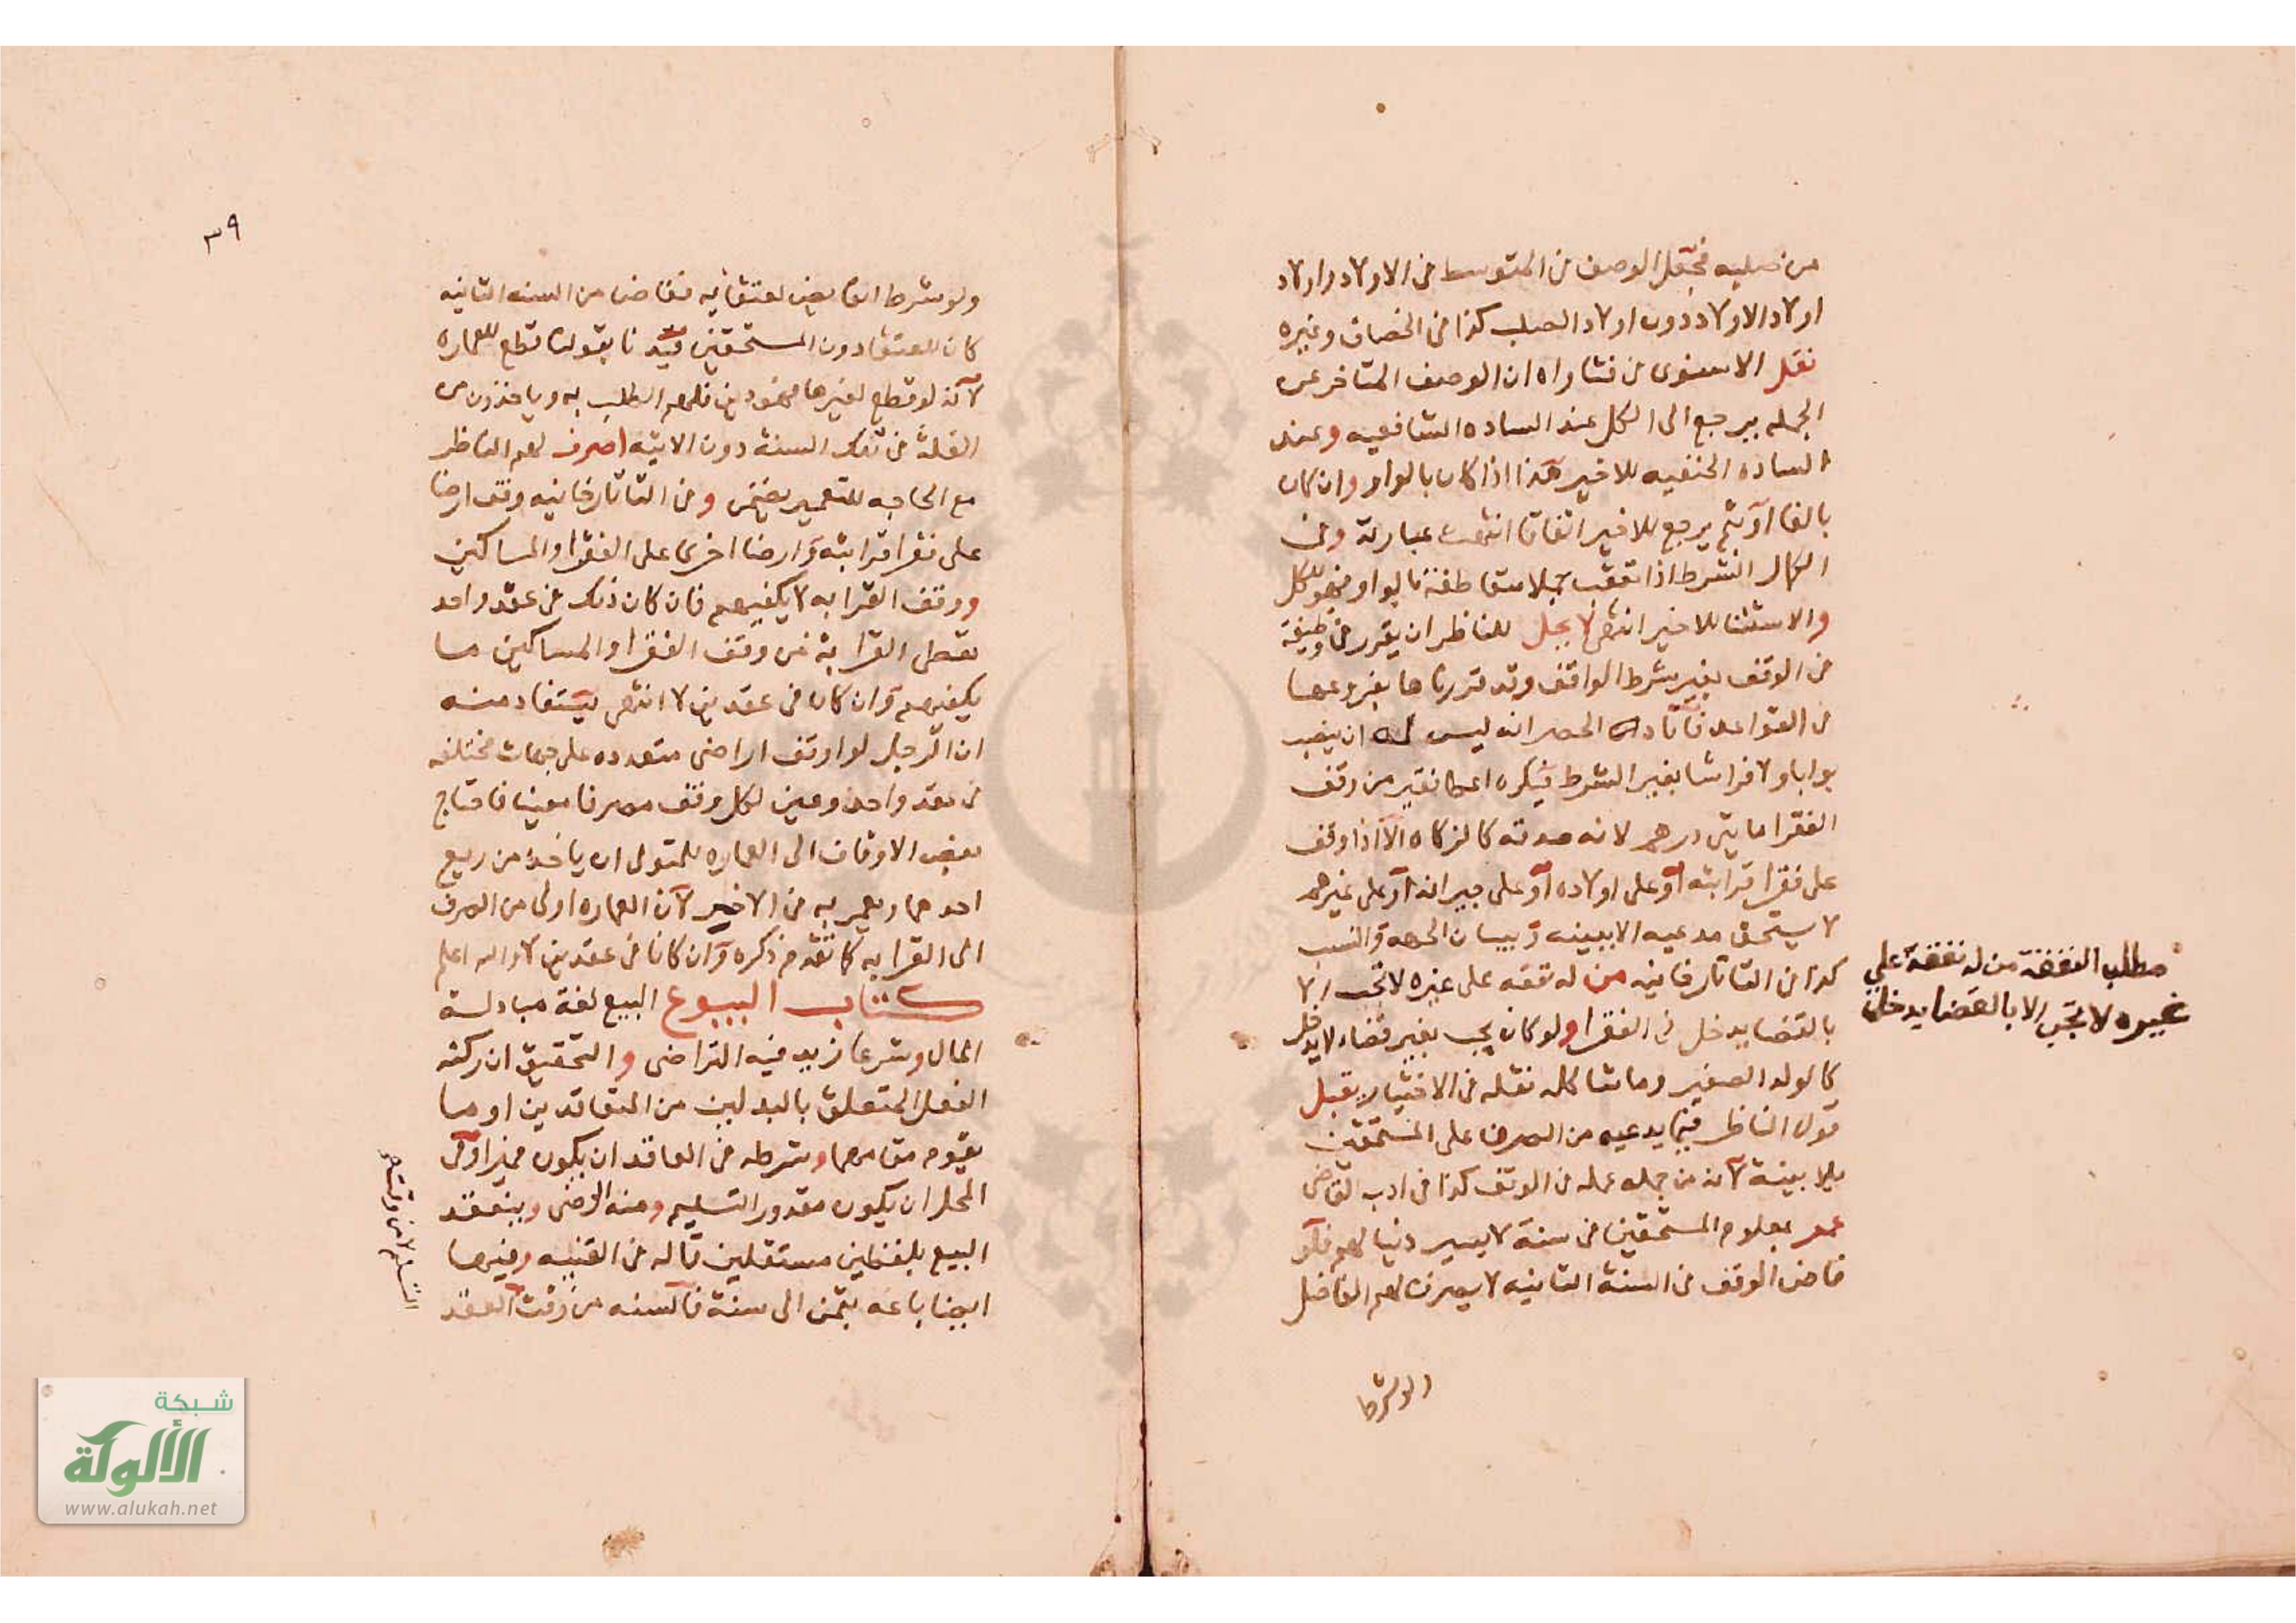 من صلبه فجعل الوصف في المتوسط في الاولاد واولاد
اولاد الاولاد دون اولاد الصلب كذا في الخصاف وغيره
نقل الاسنوي في فتاواه ان الوصف المتاخر عن
الجمله يرجع الى الكل عند الساده الشافعيه وعند
الساده الحنفيه للاخير هذا اذا كان بالواو وان كان
بالفا او ثم يرجع للاخير اتفاقا انتهت عبارته وفي
الكمال الشرط اذا تعقب جملا متعاطفة بالواو فهو للكل
والاستثنا للاخير انتهى لا يحل للناظر ان يقرر في وظيفة
في الوقف بغير شرط الواقف وقد قررناها بفروعها
في القواعد فافاده الحصر انه ليس له ان ينصب
بوابا ولا فراشا بغير الشرط فيكره اعطا فقير من وقف
الفقرا مايتي درهم لانه صدقه كالزكاه الا اذا وقف
على فقرا قرابته او على اولاده او على جيرانه او على غيرهم
لا يستحق مدعيه الا ببينه وبيان الجهه والنسب
كذا في التاتارخانيه من له نفقه على غيره لا تجب الا
بالقضا يدخل في الفقرا ولو كان يجب بغير قضاء لا يدخل
كالولد الصغير وما شاكله نقله في الاختيار يقبل
قول الناظر فيما يدعيه من الصرف على المستحقين
بلا بينة لانه من جمله عمله في الوقف كذا في ادب القاضي
عمر بمعلوم المستحقين في سنة لا يصير دينا لهم فلو
فاض الوقف في السنة الثانيه لا يصرف لهم الفاضل
ولو شرط
مطلب النفقة من له نفقة علي
غيره لا تجب الا بالقضا يدخل
٣٩
ولو شرط الفايض لعتقايه ففاض من السنه الثانيه
كان للعتقا دون المستحقين قيدنا بقولنا قطع للعماره
لانه لو قطع لغيرها فهو دين فلهم الطلب به وياخذون من
الغلة في تلك السنة دون الاتيه اصرف لهم الناظر
مع الحاجه للتعمير يضمن وفي التاتارخانيه وقف ارضا
على فقرا قرابته وارضا اخرى على الفقرا والمساكين
ووقف القرابه لا يكفيهم فان كان ذلك في عقد واحد
يعطى القرابة من وقف الفقرا والمساكين ما
يكفيهم وان كان في عقدين لا انتهى يستفاد منه
ان الرجل لو اوقف اراضي متعدده على جهات مختلفه
في عقد واحد وعين لكل وقف مصرفا معينا فاحتاج
بعض الاوقاف الى العماره للمتولي ان ياخذ من ريع
احدهما ويعمر به في الاخير لان العماره اولى من الصرف
الى القرابه كما تقدم ذكره وان كانا في عقدين لا والله اعلم
كتاب البيوع البيع لغة مبادلة
المال وشرعا زيد فيه التراضي والتحقيق ان ركنه
الفعل المتعلق بالبدلين من المتعاقدين او ما
يقوم مقامهما وشرطه في العاقد ان يكون مميزا وفي
المحل ان يكون مقدور التسليم ومنه الرضى وينعقد
البيع بلفظين مستقلين قاله في القنيه وفيها
ايضا باعه بثمن الى سنة فالسنه من وقت العقد